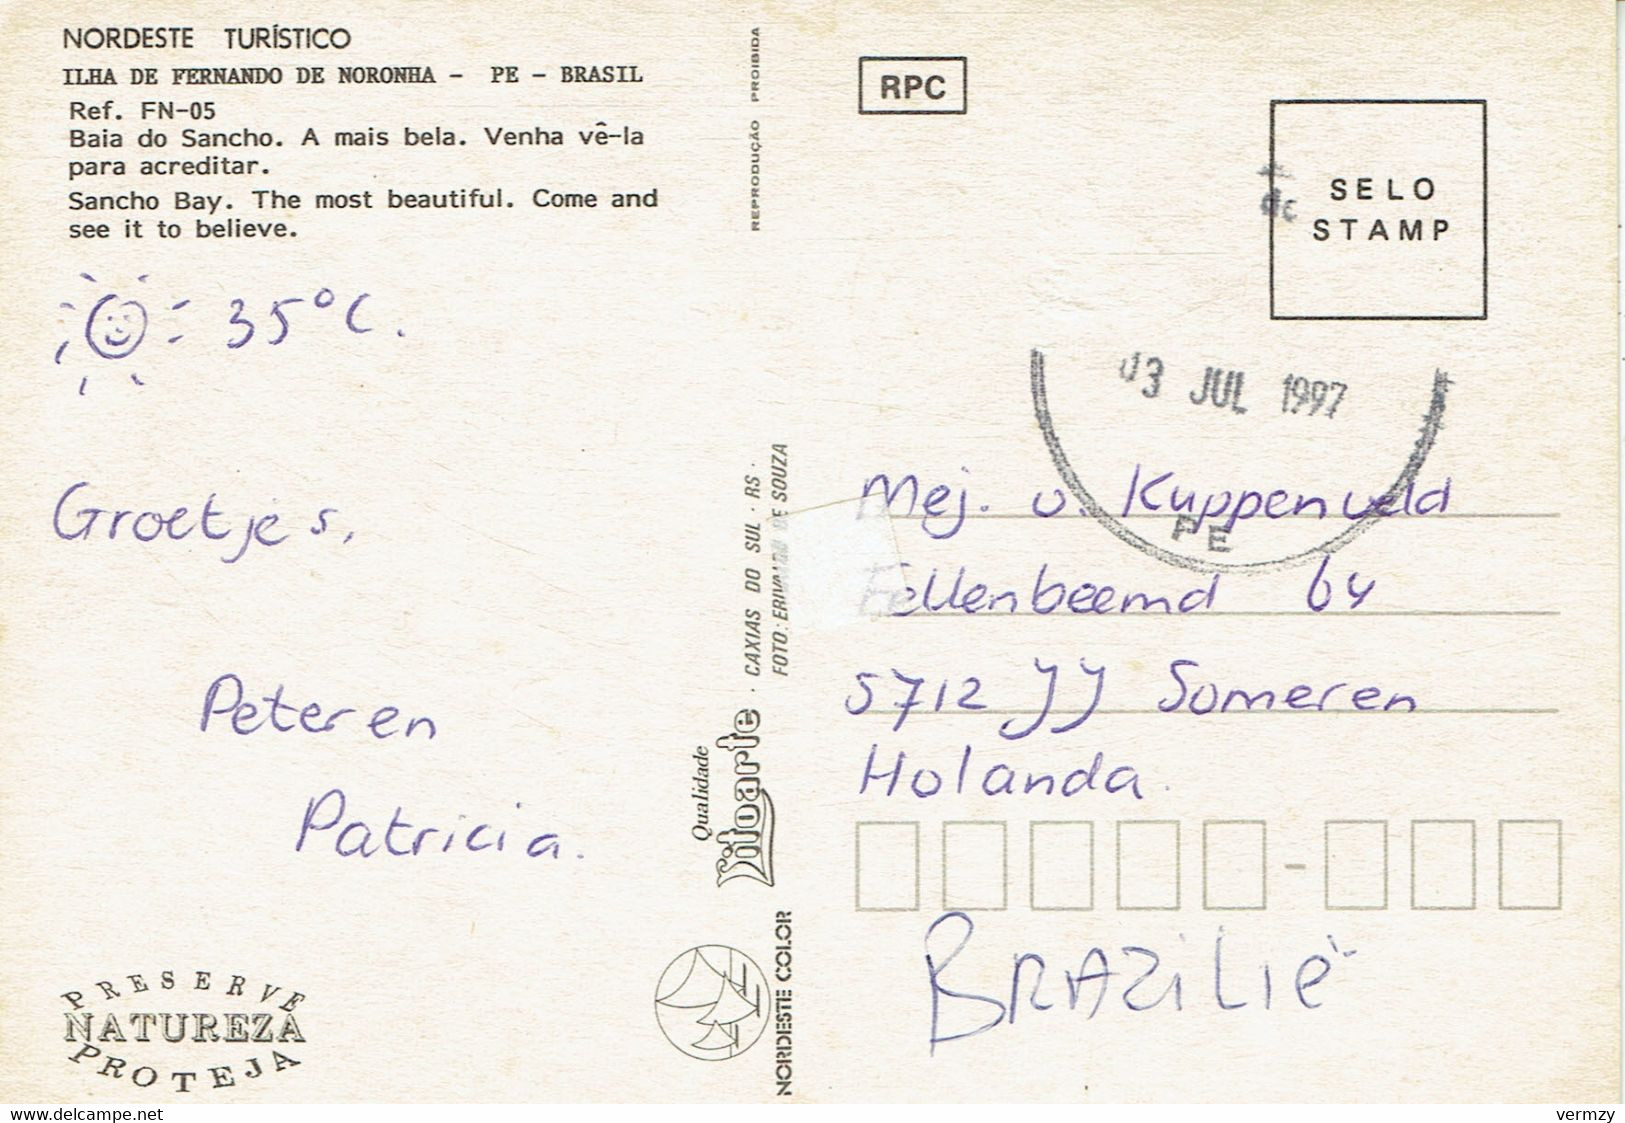 NORDESTE TURÍSTICO
ILHA DE FERNANDO DE NORONHA - PE - BRASIL
Ref. FN-05
Baia do Sancho. A mais bela. Venha vê-la
para acreditar.
Sancho Bay. The most beautiful. Come and
see it to believe.
35°C.
Groetjes,
Peter en
Patricia.
PRESERVE
NATUREZA
PROTEJA
REPRODUÇÃO PROIBIDA
CAXIAS DO SUL - RS -
FOTO: DE SOUZA
Qualidade
Litoarte
NORDESTE COLOR
RPC
SELO
STAMP
03 JUL 1997
PE
Mej. v. Kuppenveld
Eellenbeemd 64
5712 JJ Someren
Holanda.
BRAZILIË
delcampe.net
vermzy